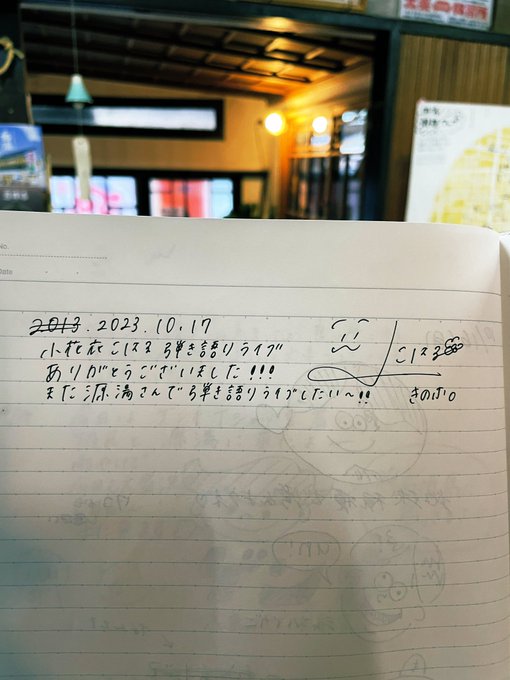 No.
Date
2013. 2023.10.17
小花衣こはる 弾き語りライブ
ありがとうございました!!!
また源湯さんで弾き語りライブしたい〜!!
こはる
きのホ。